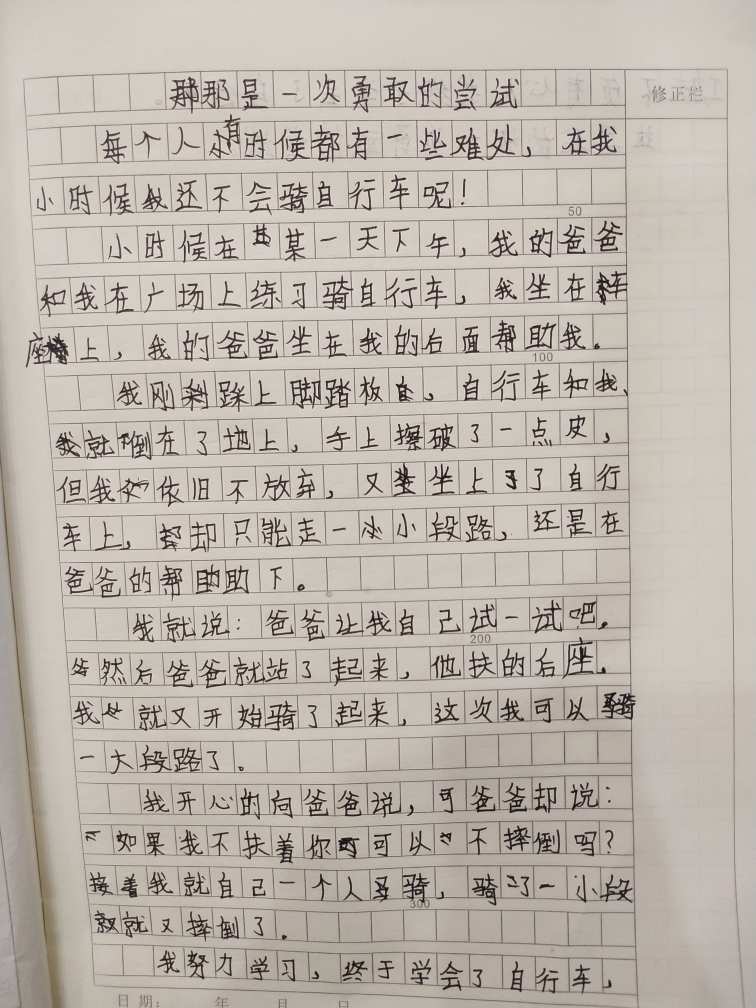 那是一次勇敢的尝试
修正栏
每个人有时候都有一些难处，在我
小时候还不会骑自行车呢！
50
小时候在某一天下午，我的爸爸
和我在广场上练习骑自行车，我坐在车
座上，我的爸爸坐在我的后面帮助我。
100
我刚踩上脚踏板，自行车和我、
我就倒在了地上，手上擦破了一点皮，
但我依旧不放弃，又坐上了自行
车上，却只能走一小段路，还是在
爸爸的帮助助下。
我就说：爸爸让我自己试一试吧。
200
然后爸爸就站了起来，他扶的后座。
我就又开始骑了起来，这次我可以骑
一大段路了。
我开心的向爸爸说，爸爸却说：
如果我不扶着你可以不摔倒吗？
接着我就自己一个人骑，骑了一小段
300
就又摔倒了。
我努力学习，终于学会了自行车，
日期： 年 月 日